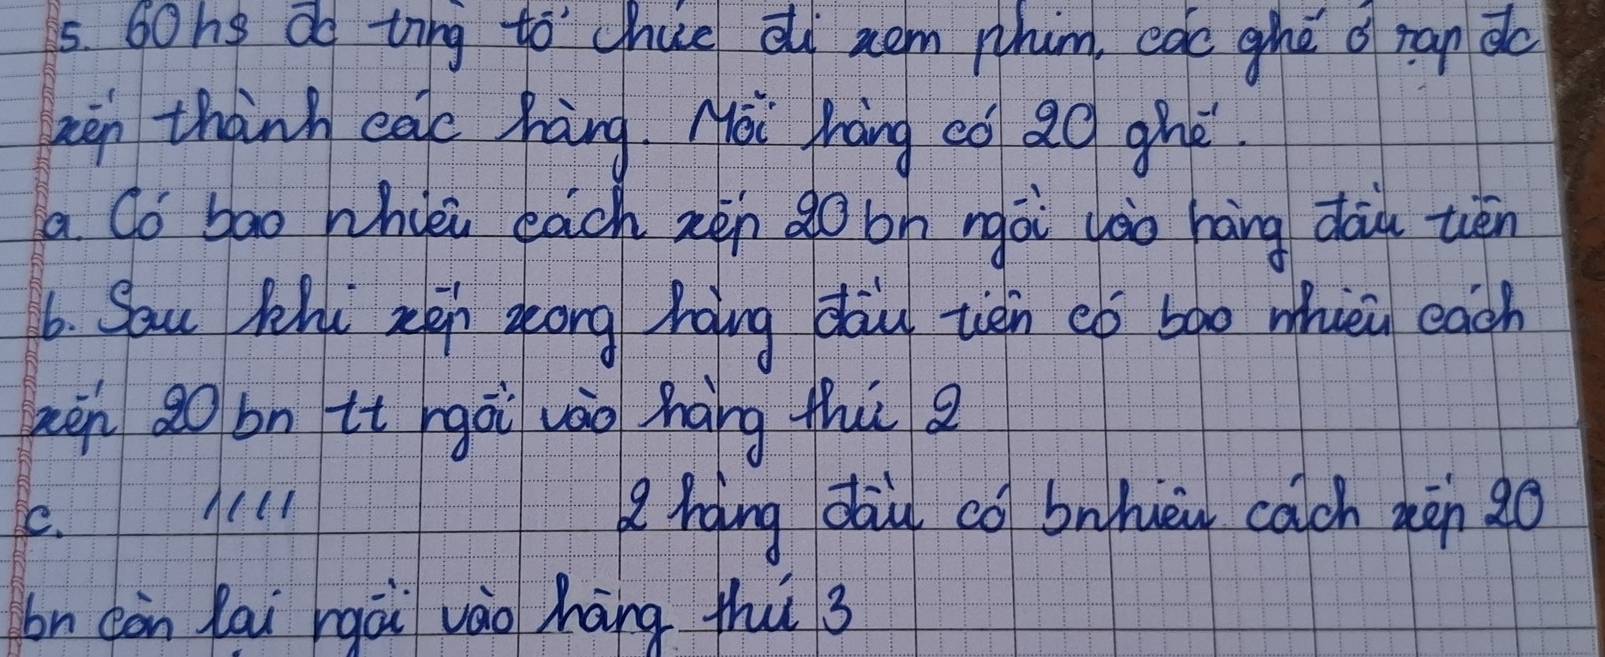 5. 60hs đc trng tổ chức đi xem phim, các ghế ở rạp đc
xếp thành các hàng. Mỗi hàng có 20 ghế.
a. Có bao nhiêu cách xếp 20 bn ngồi vào hàng đầu tiên
b. Sau khi xếp xong hàng đầu tiên có bao nhiêu cách
xếp 20 bn tt ngồi vào hàng thứ 2
c. 11111 2 hàng đầu có bnhiêu cách xếp 20
bn còn lại ngồi vào hàng thứ 3